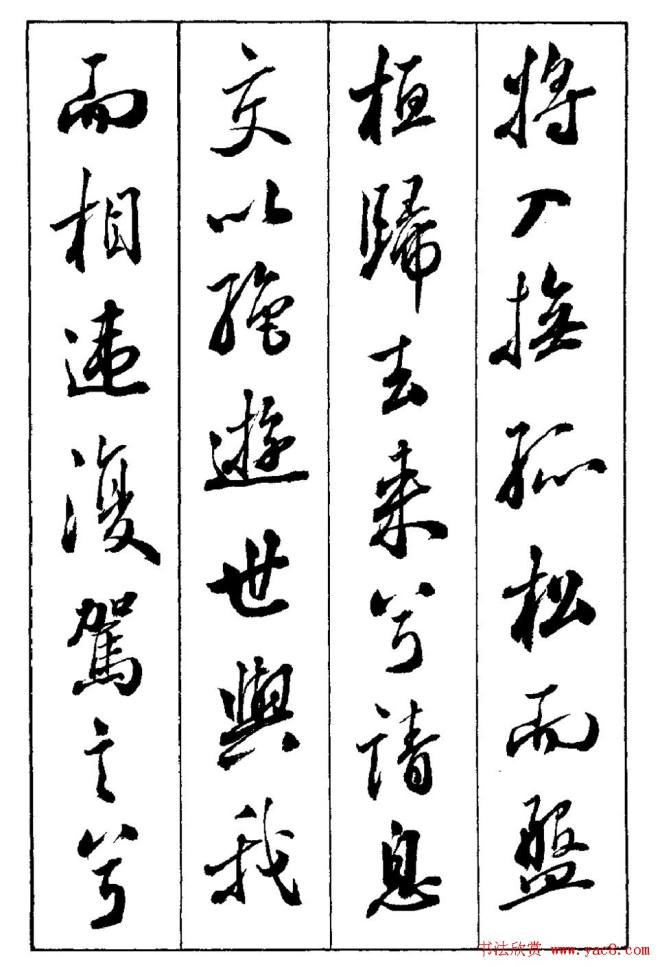 将入撫孤松而盤
桓歸去来兮請息
交以絶遊世與我
而相違復駕言兮
书法欣赏 www.yac8.com